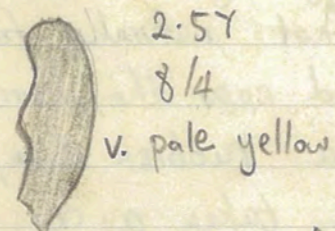 2.5Y
8/4
v. pale yellow